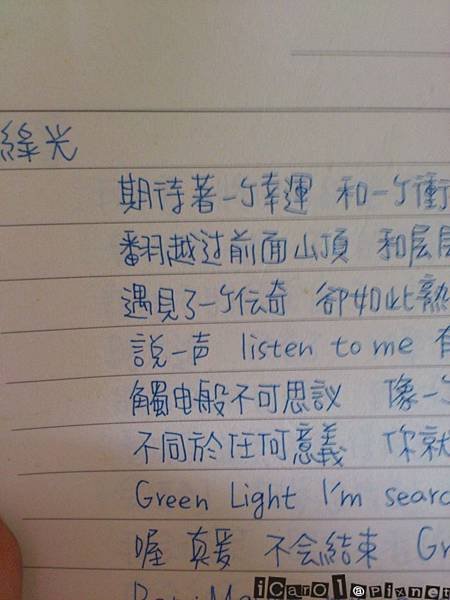 綠光
期待著一个幸運 和一个衝
翻越过前面山頂 和层层
遇見了一个伝奇 卻如此熟
説一声 listen to me 有
觸电般不可思議 像一个
不同於任何意義 你就
Green Light I'm searc
喔 真爱 不会結束 Gr
iCarol@pixnet